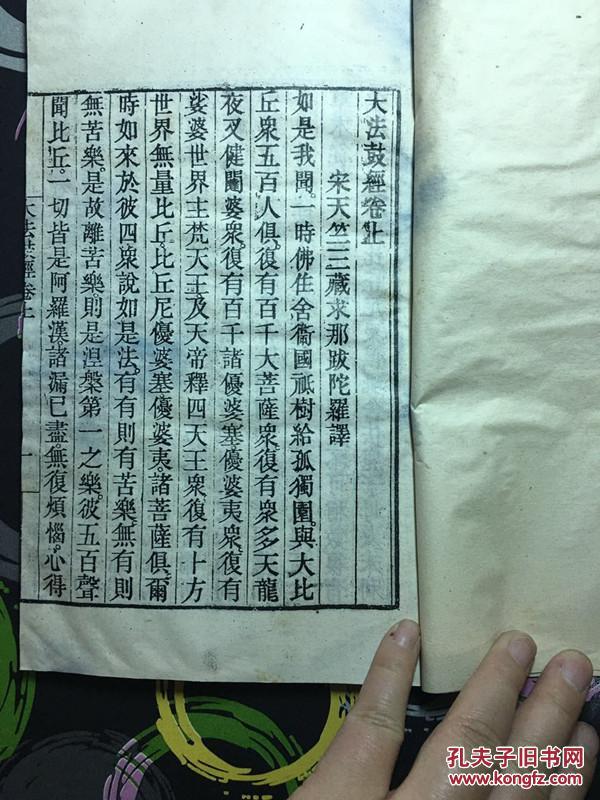 大法鼓經卷上
宋天竺三藏求那跋陀羅譯
如是我聞。一時佛住舍衞國祇樹給孤獨園。與大比
丘衆五百人俱。復有百千大菩薩衆。復有衆多天龍
夜叉健闥婆衆。復有百千諸優婆塞優婆夷衆。復有
娑婆世界主梵天王及天帝釋四天王衆。復有十方
世界無量比丘。比丘尼優婆塞優婆夷。諸菩薩俱。爾
時如來於彼四衆說如是法。有有則有苦樂。無有則
無苦樂。是故離苦樂。則是涅槃第一之樂。彼五百聲
聞比丘。一切皆是阿羅漢。諸漏已盡。無復煩惱。心得
大法鼓經卷上
一
孔夫子旧书网
www.kongfz.com